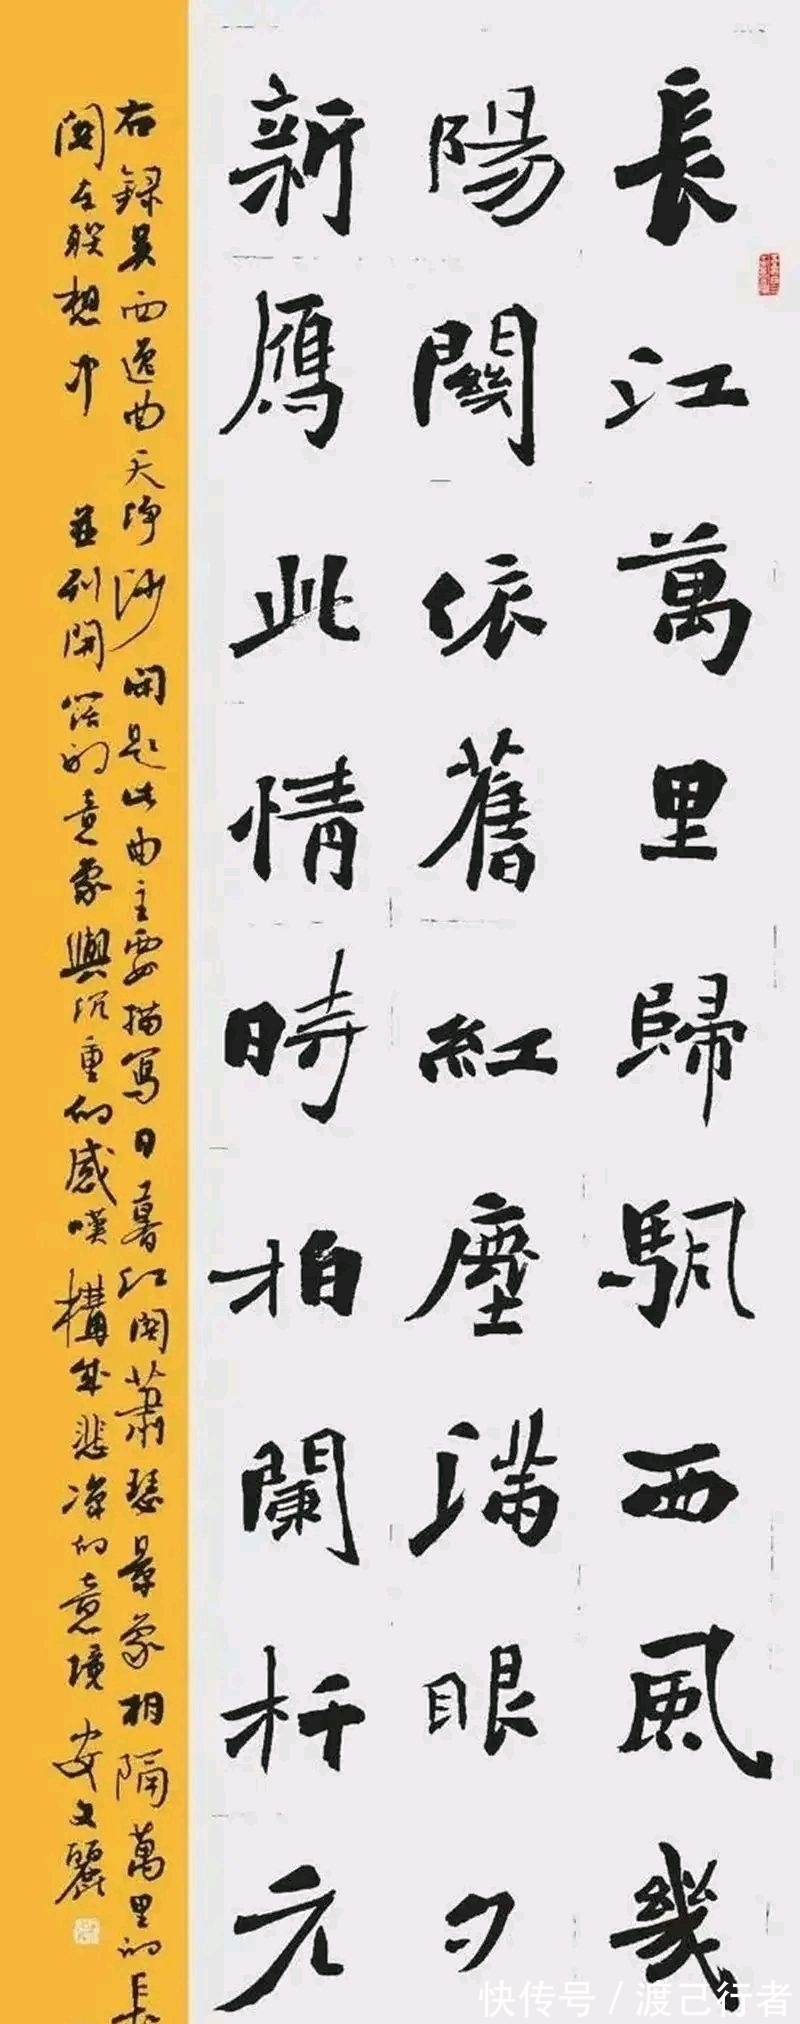 長江萬里歸颿西風幾
陽關依舊紅塵滿眼夕
新鴈此情時拍闌杆元
右録吴西逸曲天净沙閑題此曲主要描寫日暮江関蕭瑟景象相隔萬里的長
関在聯想中 並列開闊的意象與沉重的感嘆構成悲凉的意境 安文麗
快传号 / 渡己行者